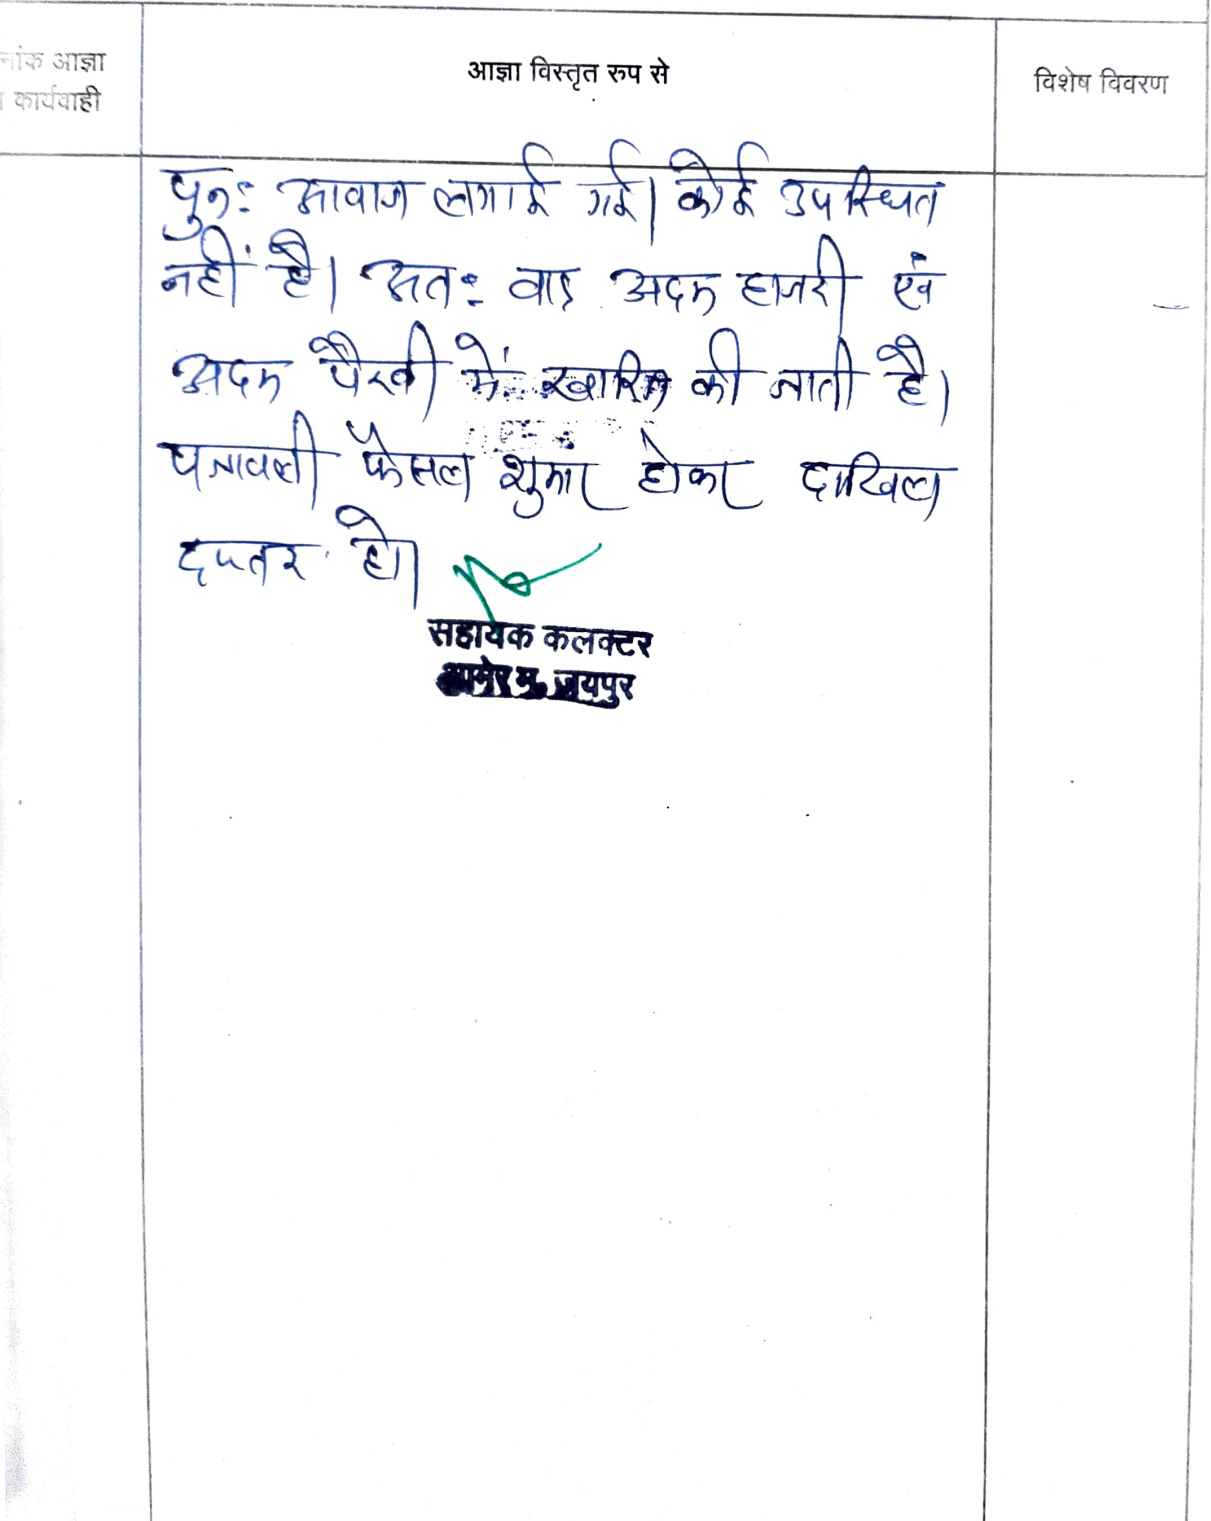 नांक आज्ञा
कार्यवाही
आज्ञा विस्तृत रुप से
विशेष विवरण
पुनः आवाज लगाई गई। कोई उपस्थित
नहीं है। अतः वाद अदम हाजरी एवं
अदम पैरवी में खारिज की जाती है।
पत्रावली फैसल शुमार होकर दाखिल
दफ्तर हो।
सहायक कलक्टर
आमेर म. जयपुर